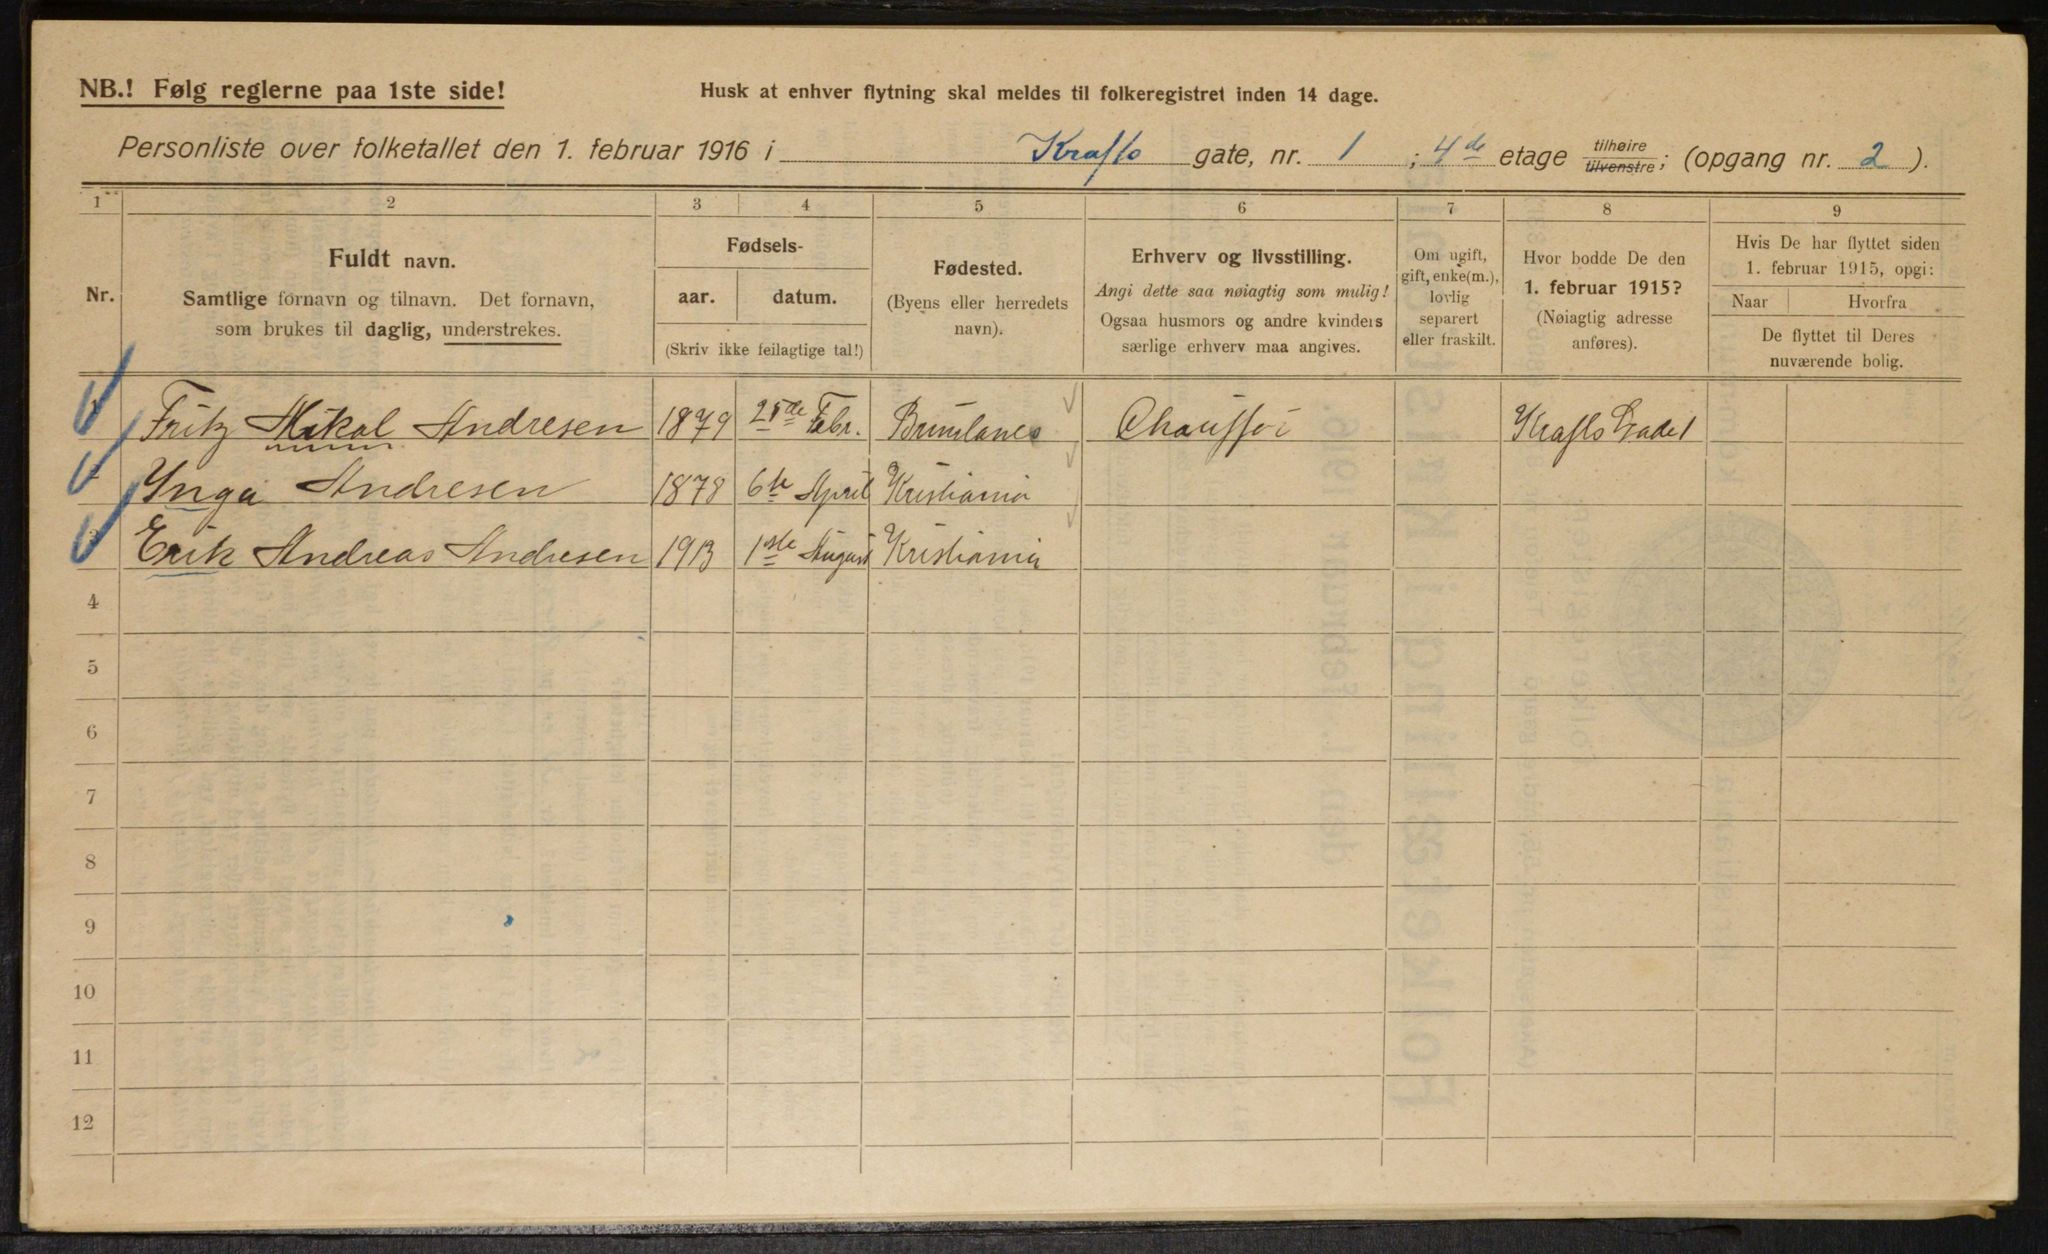 NB.! Følg reglerne paa 1ste side!
Husk at enhver flytning skal meldes til folkeregistret inden 14 dage.
Personliste over folketallet den 1. februar 1916 i Krafts gate, nr. 1 ; 4de etage tilhøire tilvenstre; (opgang nr. 2 ).
1 2 3 4 5 6 7 8 9
Nr.
Fuldt navn.
Samtlige fornavn og tilnavn. Det fornavn,
som brukes til daglig, understrekes.
Fødsels-
aar. datum.
(Skriv ikke feilagtige tal!)
Fødested.
(Byens eller herredets
navn).
Erhverv og livsstilling.
Angi dette saa nøiagtig som mulig!
Ogsaa husmors og andre kvinders
særlige erhverv maa angives.
Om ugift,
gift, enke(m.),
lovlig
separert
eller fraskilt.
Hvor bodde De den
1. februar 1915?
(Nøiagtig adresse
anføres).
Hvis De har flyttet siden
1. februar 1915, opgi:
Naar Hvorfra
De flyttet til Deres
nuværende bolig.
Fritz Mikal Andresen 1879 Febr. Brunlanes Chauffør Krafts Gade 1
2 Ynga Andresen 1878 6te April Kristiania
3 Erik Andreas Andresen 1913 1ste August Kristiania
4
5
6
7
8
9
10
11
12